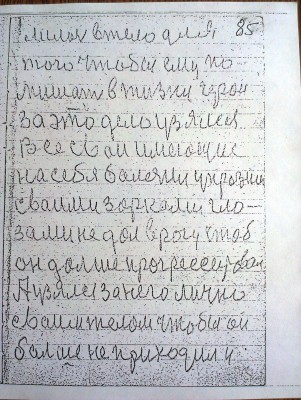 85
лился в тело для
того чтобы ему по
мишать в жизни и рои
за это дело взялся
Все свои имеющие
на себя валезни и хрозии
сваими зоркими гло-
зами не дал врогу чтоб
он дальше прогрессировал
А взялся за него лично
сваим телом чтобы он
болше не приходил и